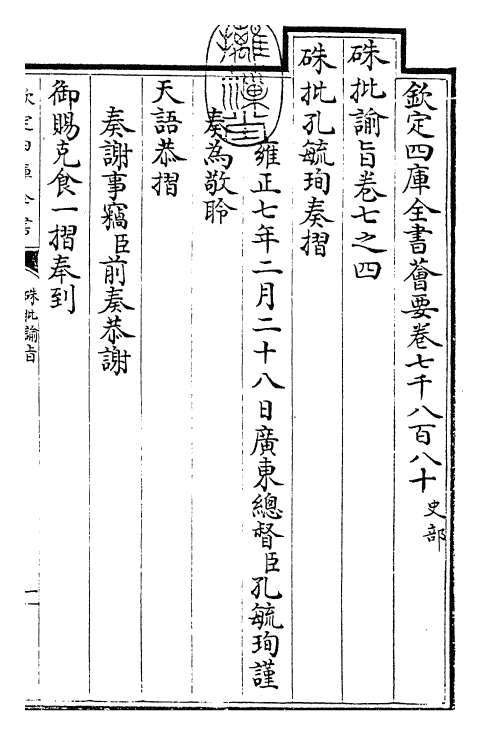 欽定四庫全書薈要卷七千八百八十 史部
硃批諭旨卷七之四
硃批孔毓珣奏摺
雍正七年二月二十八日廣東總督臣孔毓珣謹
奏為敬聆
天語恭摺
奏謝事竊臣前奏恭謝
御賜克食一摺奉到
欽定四庫全書
硃批諭旨
一